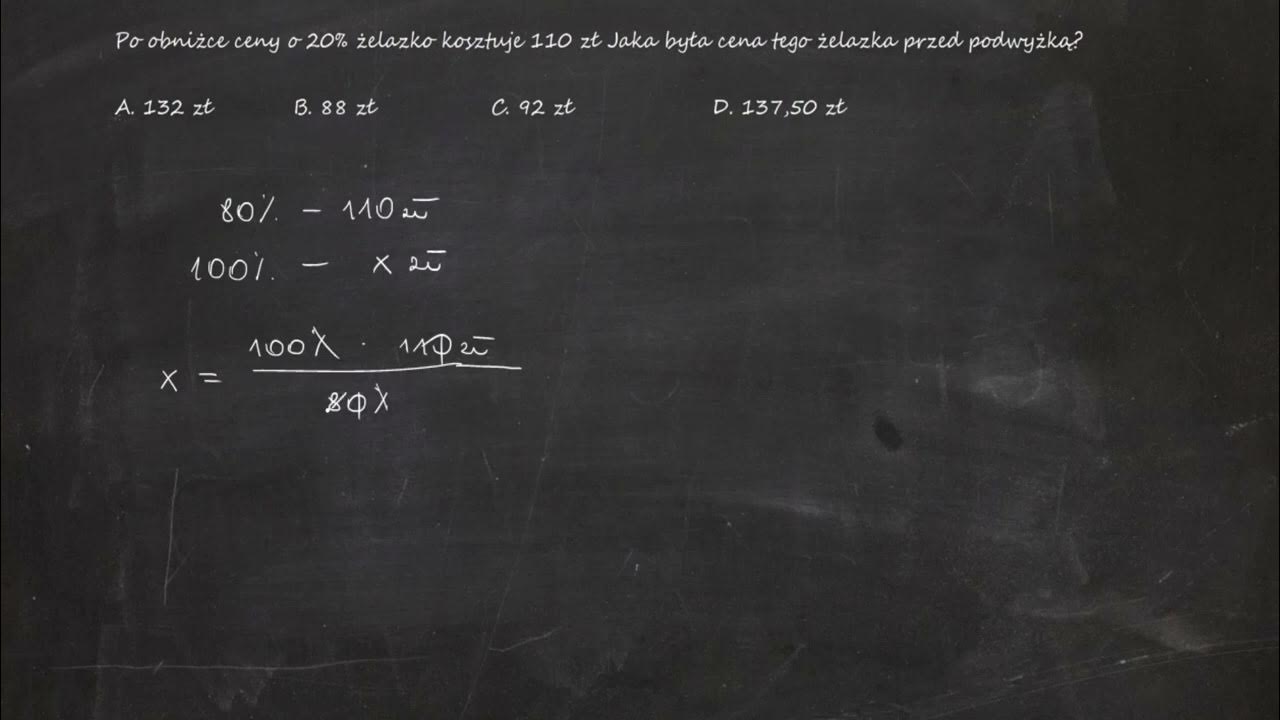 Po obniżce ceny o 20% żelazko kosztuje 110 zł Jaka była cena tego żelazka przed podwyżką?
A. 132 zł B. 88 zł C. 92 zł D. 137,50 zł
80% - 110 zł
100% - x zł
100% · 110 zł
x =
80%